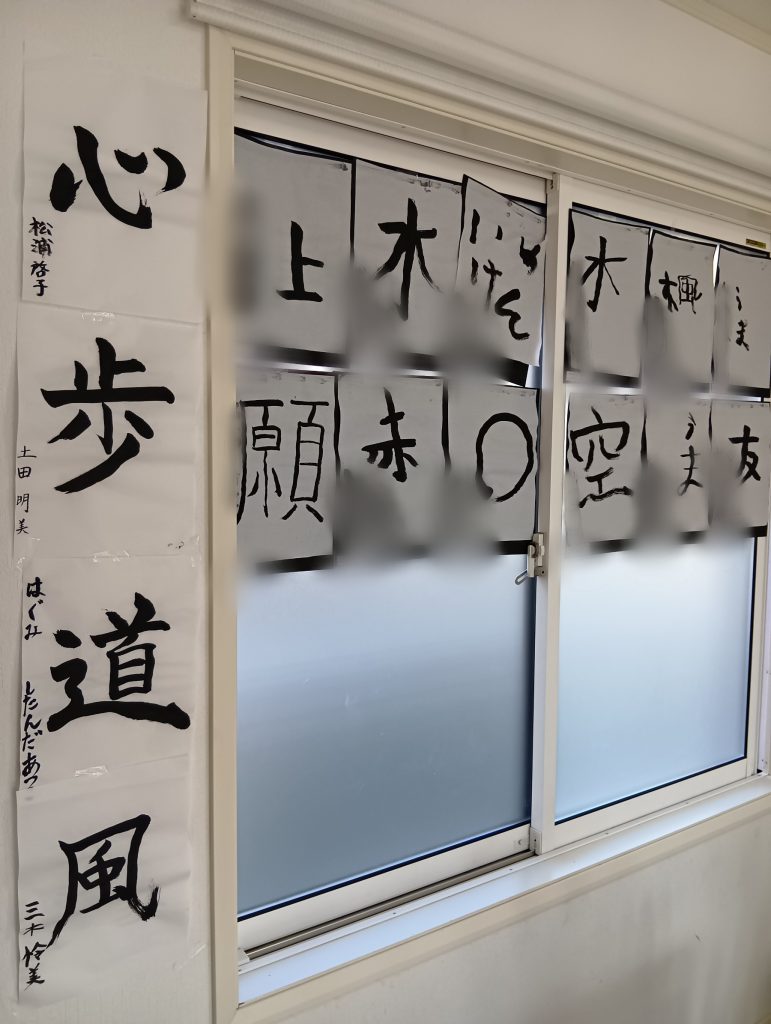 心
松浦啓子
歩
土田明美
道
はぐみ
したんだあつ
風
三木怜美
上
水
いけ
めん
水
楓
うま
願
赤
〇
空
うま
友